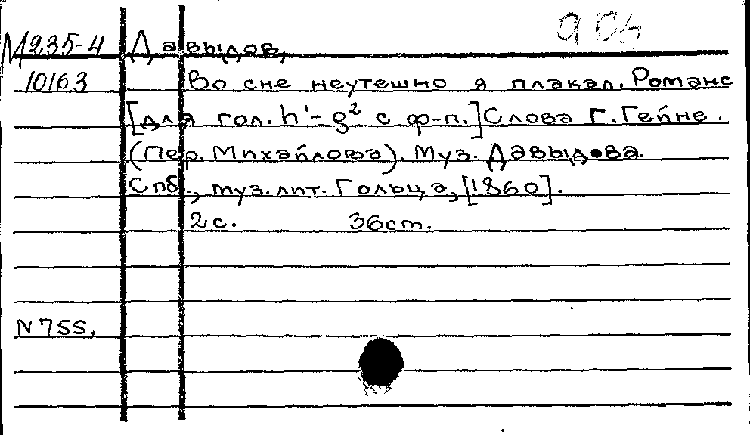 М235-4 Давыдов,
10163 Во сне неутешно я плакал. Романс
[для гол. h¹-g² с ф-п.] Слова Г. Гейне.
(Пер. Михайлова). Муз. Давыдова.
Спб., муз. лит. Гольца, [1860].
2 с. 36 ст.
N 755.